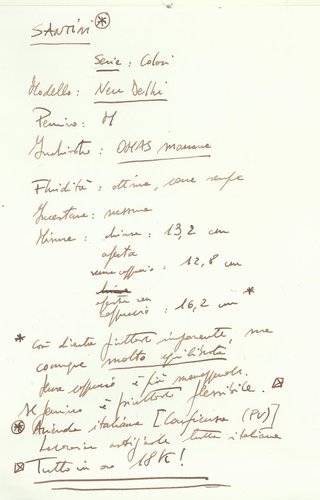 SANTINI *
Serie: Colori
Modello: New Delhi
Pennino: M
Inchiostro: OMAS marrone
Fluidità: ottima, come sempre
Incertezze: nessuna
Misure: chiusa: 13,2 cm
aperta
senza cappuccio: 12,8 cm
aperta con
cappuccio: 16,2 cm *
* Così diventa piuttosto imponente, ma
comunque molto equilibrata
senza cappuccio è più maneggevole.
Il pennino è piuttosto flessibile.
* Azienda italiana [Confienza (PV)]
Lavorazione artigianale tutta italiana
Tutto in oro 18K!